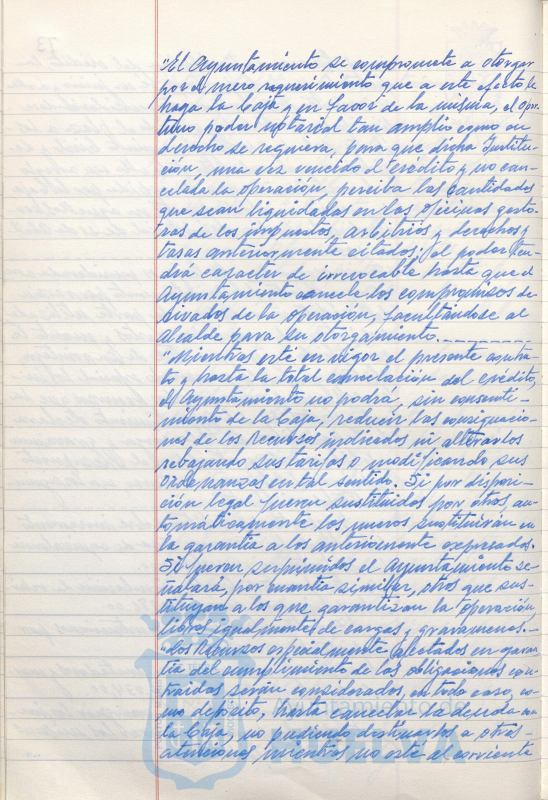 "El Ayuntamiento se compromete a otorgar
por el mero requerimiento que a este efecto le
haga la Caja y en favor de la misma, el opor-
tuno poder notarial tan amplio como en
derecho se requiera, para que dicha Institu-
ción, una vez vencido el crédito y no can-
celada la operación, perciba las cantidades
que sean liquidadas en las Oficinas gesto-
ras de los impuestos, arbitrios y derechos y
tasas anteriormente citados: el poder ten-
drá caracter de irrevocable hasta que el
Ayuntamiento cancele los compromisos de-
rivados de la operación, facultándose al
Alcalde para su otorgamiento.
"Mientras esté en vigor el presente contra-
to y hasta la total cancelación del crédito,
el Ayuntamiento no podrá, sin consenti-
miento de la Caja, reducir las consignacio-
nes de los recursos indicados ni alterarlos
rebajando sus tarifas o modificando sus
Ordenanzas en tal sentido. Si por disposi-
ción legal fueren sustituidos por otros, au-
tomáticamente los nuevos sustituirán en
la garantía a los anteriormente expresados.
Si fueran suprimidos el Ayuntamiento se-
ñalará, por cuantía similar, otros que sus-
tituyan a los que garantizan la operación
libres igualmente de cargas y gravamenes.-
"Los recursos especialmente afectados en garan-
tía del cumplimiento de las obligaciones con-
traidas serán considerados, en todo caso, co-
mo depósito, hasta cancelar la deuda con
la Caja, no pudiendo destinarlos a otras
atenciones mientras no esté al corriente
Ayuntamiento de